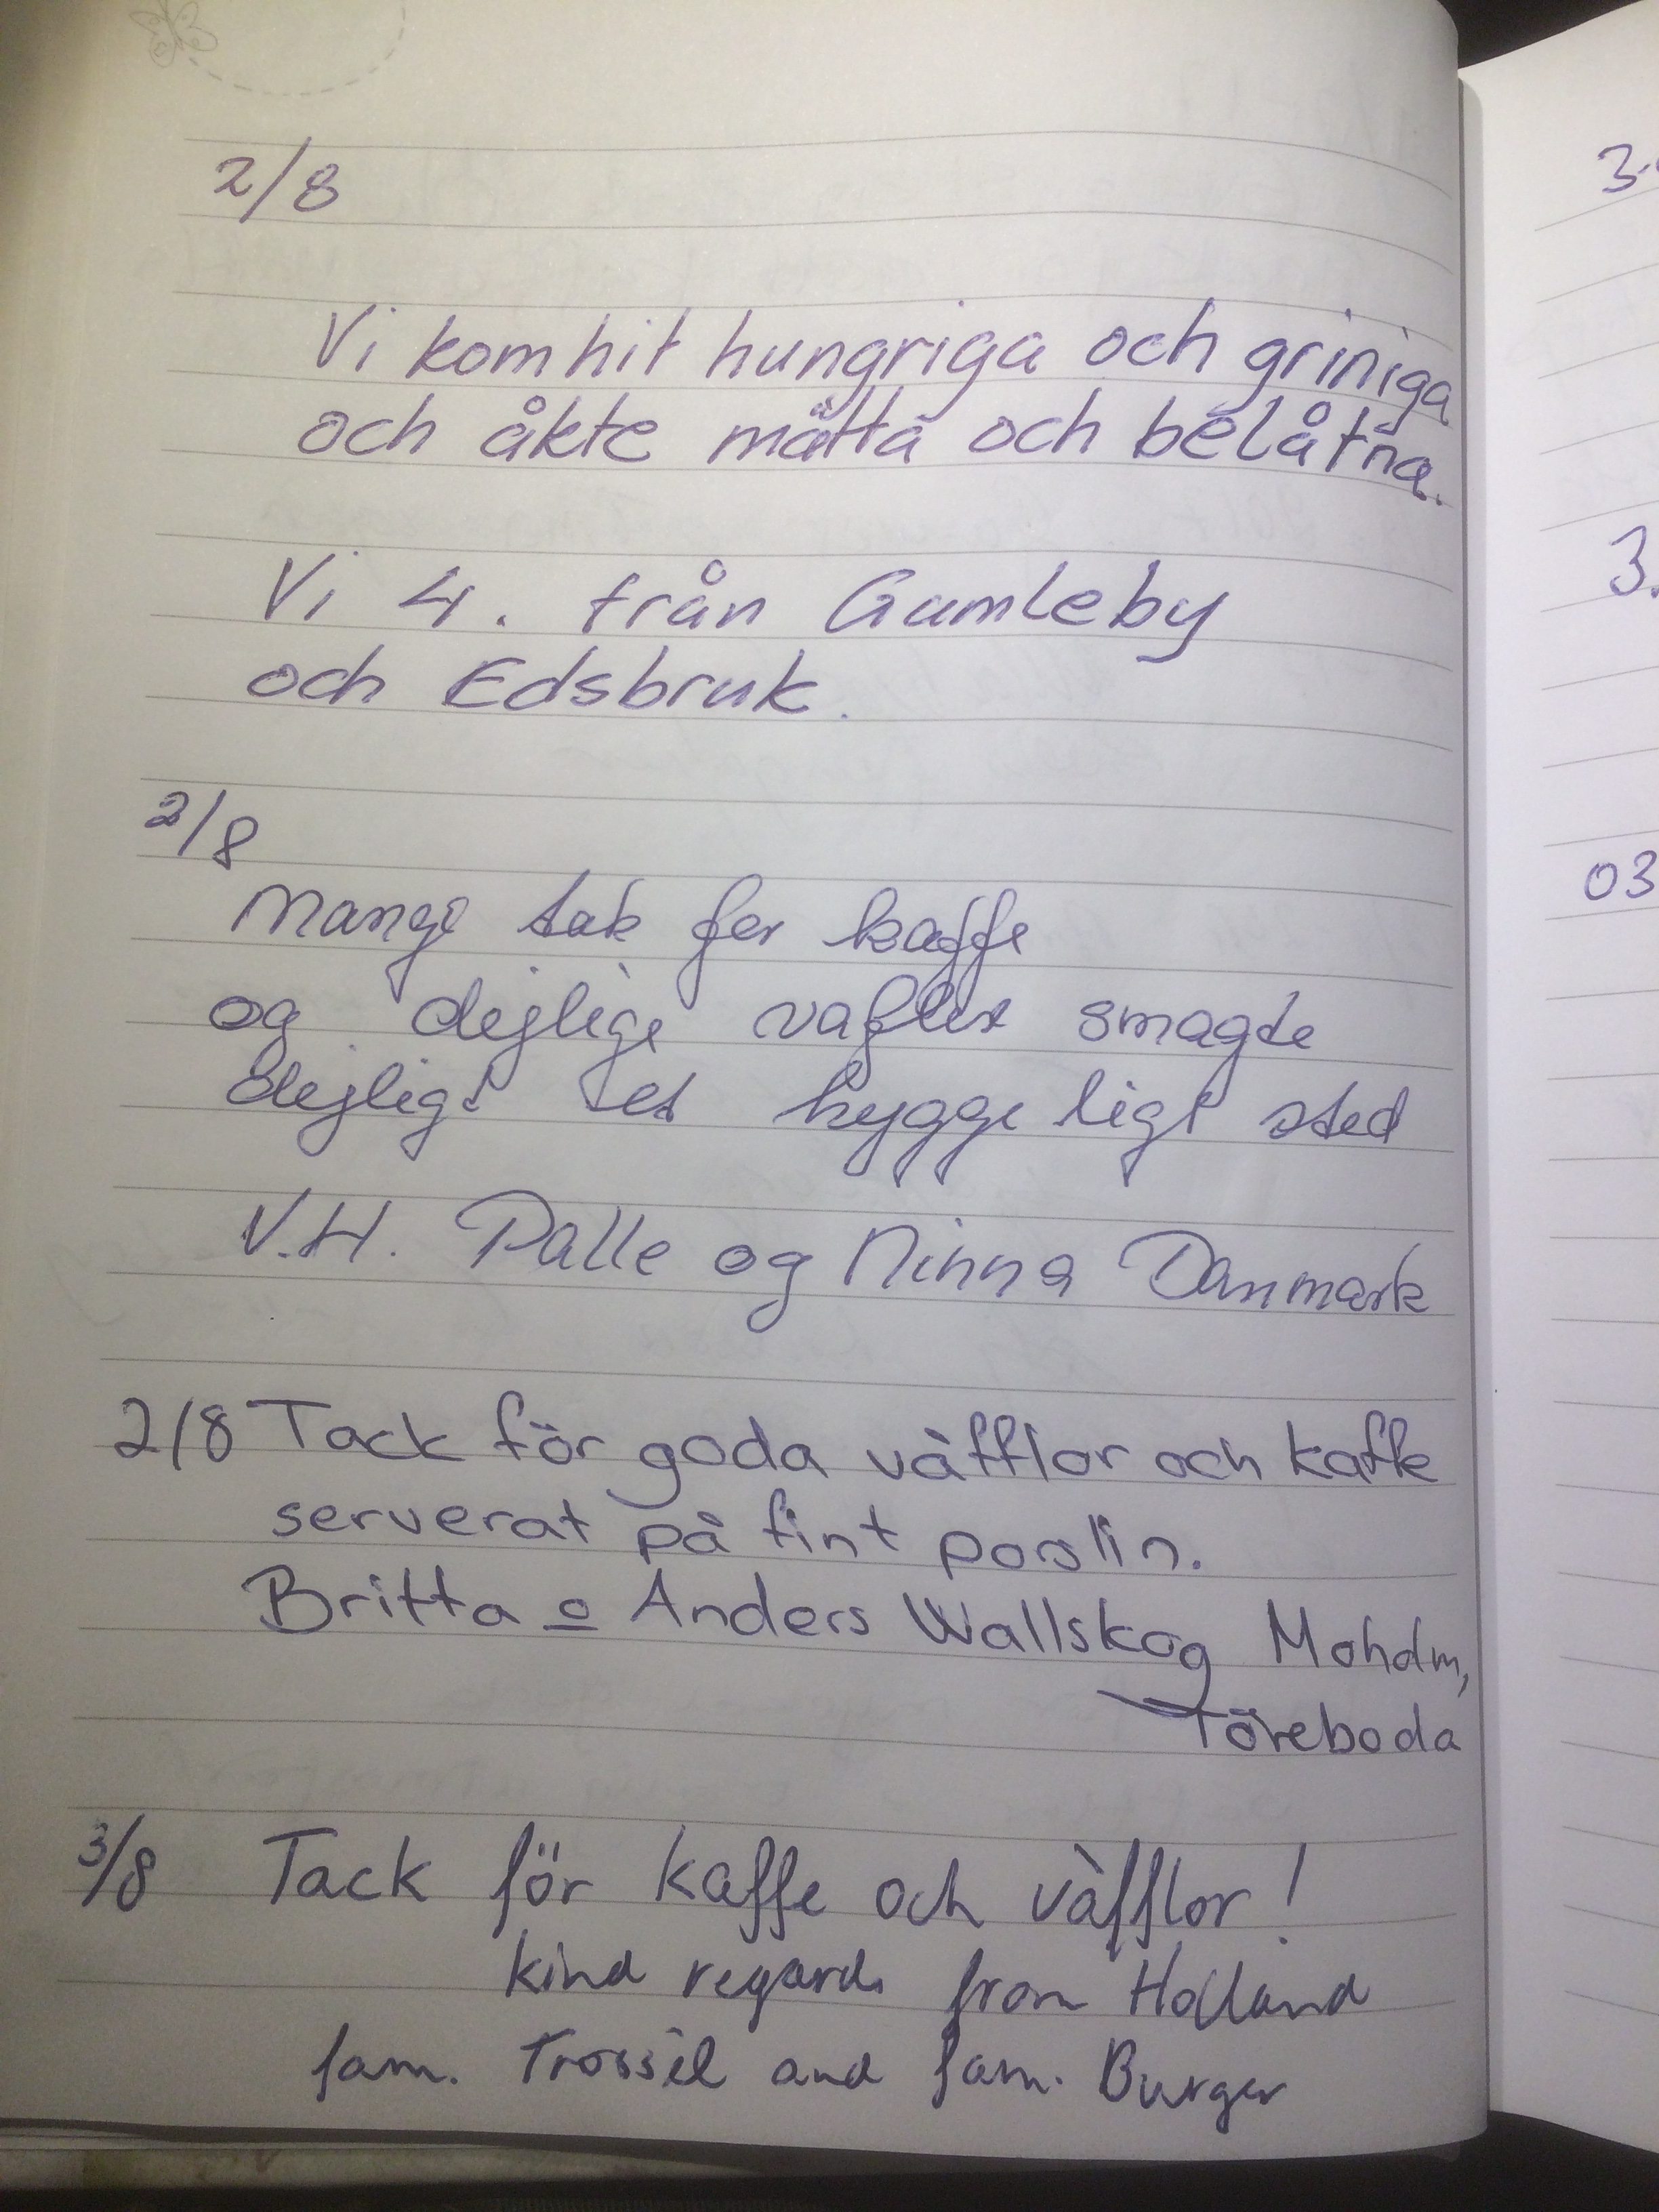 2/8
Vi kom hit hungriga och griniga
och åkte mätta och belåtna.
Vi 4. från Gamleby
och Edsbruk.
2/8
Mange tak for kaffe
og dejlige vafler smagte
dejligt et hyggeligt sted
V.H. Palle og Ninna Danmark
2/8 Tack för goda våfflor och kaffe
serverat på fint porslin.
Britta o Anders Wallskog Moholm,
Töreboda
3/8 Tack för kaffe och våfflor!
kind regards from Holland
fam. Trossèl and fam. Burger
3.
3.
03